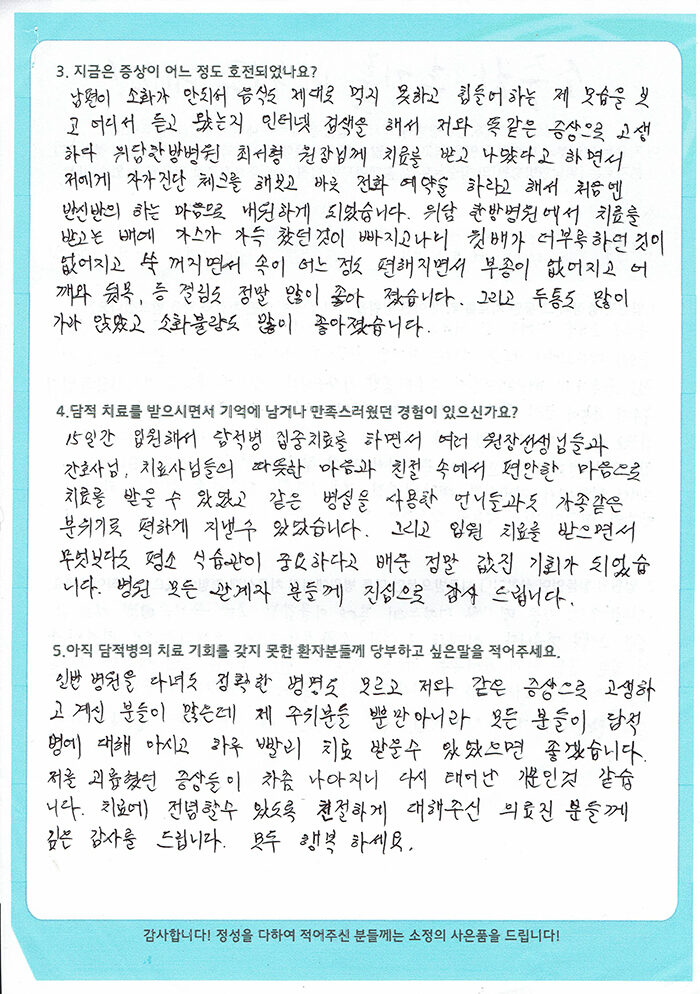 3. 지금은 증상이 어느 정도 호전되었나요?
남편이 소화가 안되서 음식도 제대로 먹지 못하고 힘들어하는 제 모습을 봇
고 어디서 듣고 왔는지 인터넷 검색을 해서 저와 똑같은 증상으로 고생
하다 위담한방병원 최서형 원장님께 치료를 받고 나았다고 하면서
저에게 자가진단 체크를 해보고 바로 전화 예약을 하라고 해서 처음엔
반신반의 하는 마음으로 내원하게 되었습니다. 위담 한방병원에서 치료를
받고는 배에 가스가 가득 찼던것이 빠지고나니 윗배가 더부룩하던 것이
없어지고 쑥 꺼지면서 속이 어느 정도 편해지면서 부종이 없어지고 어
깨와 뒷목, 등 결림도 정말 많이 좋아 졌습니다. 그리고 두통도 많이
가라 앉았고 소화불량도 많이 좋아졌습니다.
4.담적 치료를 받으시면서 기억에 남거나 만족스러웠던 경험이 있으신가요?
15일간 입원해서 담적병 집중치료를 하면서 여러 원장선생님들과
간호사님, 치료사님들의 따뜻한 마음과 친절 속에서 편안한 마음으로
치료를 받을 수 있었고 같은 병실을 사용한 언니들과도 가족같은
분위기로 편하게 지낼수 있었습니다. 그리고 입원 치료를 받으면서
무엇보다도 평소 식습관이 중요하다고 배운 정말 값진 기회가 되었습
니다. 병원 모든 관계자 분들께 진심으로 감사 드립니다.
5.아직 담적병의 치료 기회를 갖지 못한 환자분들께 당부하고 싶은말을 적어주세요.
일반 병원을 다녀도 정확한 병명도 모르고 저와 같은 증상으로 고생하
고 계신 분들이 많은데 제 주위분들 뿐만아니라 모든 분들이 담적
병에 대해 아시고 하루 빨리 치료 받을수 있었으면 좋겠습니다.
저를 괴롭혔던 증상들이 차츰 나아지니 다시 태어난 기분인것 같습
니다. 치료에 전념할수 있도록 친절하게 대해주신 의료진 분들께
깊은 감사를 드립니다. 모두 행복 하세요.
감사합니다! 정성을 다하여 적어주신 분들께는 소정의 사은품을 드립니다!